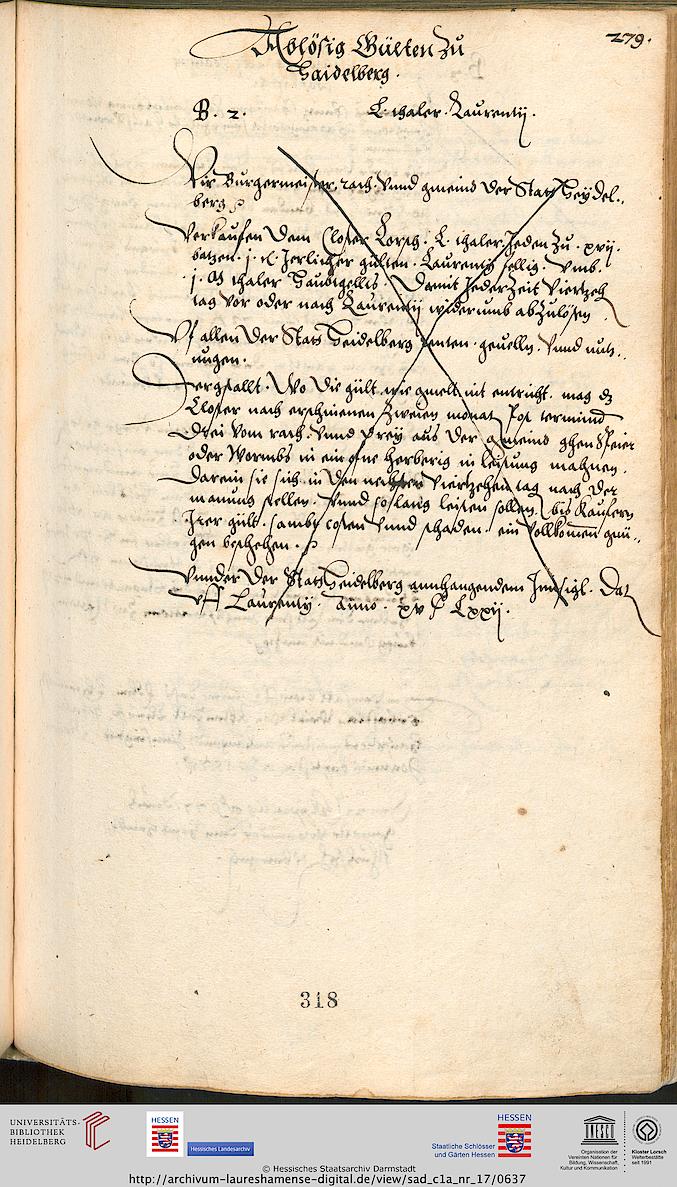 279.
Ablösig Gülten zu
Haidelberg.
B. 2. L. thaler. Laurentij.
Wir Burgermeister, rath. Vnnd gmeind der Statt Heydel-
berg
Verkaufen dem Closter Lorsch. L. thaler. Jeden zu. xvij.
batzen. j. Jerlicher gülten. Laurentij fellig. Vmb.
j. thaler Hauptgellts. Damit jeder Zeit Viertzeh
tag vor oder nach Laurentij widerumb abZulösen
Vf allen der Statt Heidelberg renten. geuelln. Vnnd nutz-
nungen.
Dergstallt. Wo die gült, wie gmelt nit entricht. mag dz
Closter nach erschinenen Zweien monat Post terminū
Drei Vom rath. Vnnd drey aus der gemeind ghen Speier
oder Wormbs in ein herberig in leistung mahnen.
Darein sie sich in den nechsten Viertzehen tag nach der
manung stellen. Vnnd so lang leisten sollen. bis Kaufern
Jrer gült. sambt costen Vnnd schaden. ein Vollkomen gnü-
gen beschehen.
Vnnder der Statt Heidelberg annhangendem Innsigl. Dat
Vff Laurentij. Anno. xv C Lxxij.
318
UNIVERSITÄTS-
BIBLIOTHEK
HEIDELBERG
HESSEN
Hessisches Landesarchiv
Staatliche Schlösser
und Gärten Hessen
HESSEN
UNESCO
Organisation der
Vereinten Nationen für
Bildung, Wissenschaft,
Kultur und Kommunikation
Kloster Lorsch
Welterbestätte
seit 1991
© Hessisches Staatsarchiv Darmstadt
http://archivum-laureshamense-digital.de/view/sad_c1a_nr_17/0637